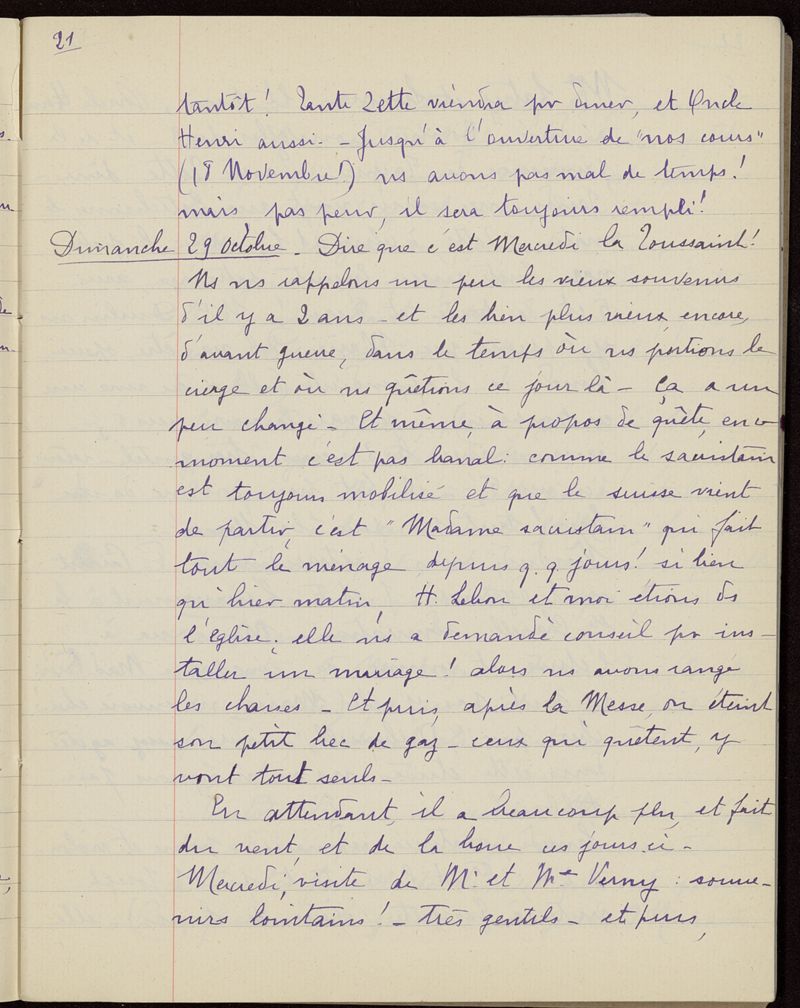 21
tantôt! Tante Zette viendra pr dîner, et Oncle
Henri aussi. – Jusqu'à l'ouverture de "nos cours"
(18 Novembre!) ns avons pas mal de temps!
mais pas peur, il sera toujours rempli!
Dimanche 29 Octobre. – Dire que c'est Mercredi la Toussaint!
Ns ns rappelons un peu les vieux souvenirs
d'il y a 2 ans – et les bien plus vieux encore,
d'avant guerre, dans le temps où ns portions le
cierge et où ns quêtions ce jour là – Ça a un
peu changé – Et même, à propos de quête, en ce
moment c'est pas banal: comme le sacristain
est toujours mobilisé et que le suisse vient
de partir, c'est "Madame sacristain" qui fait
tout le ménage depuis q.q jours! si bien
qu'hier matin, H. Lebon et moi étions ds
l'église: elle ns a demandé conseil pr ins-
taller un mariage! alors ns avons rangé
les chaises – Et puis, après la Messe, on éteint
son petit bec de gaz – ceux qui quêtent, y
vont tout seuls –
En attendant, il a beaucoup plu, et fait
du vent, et de la boue ces jours ci –
Mercredi, visite de Mr et Mme Verny: souve-
nirs lointains! – très gentils – et puis,